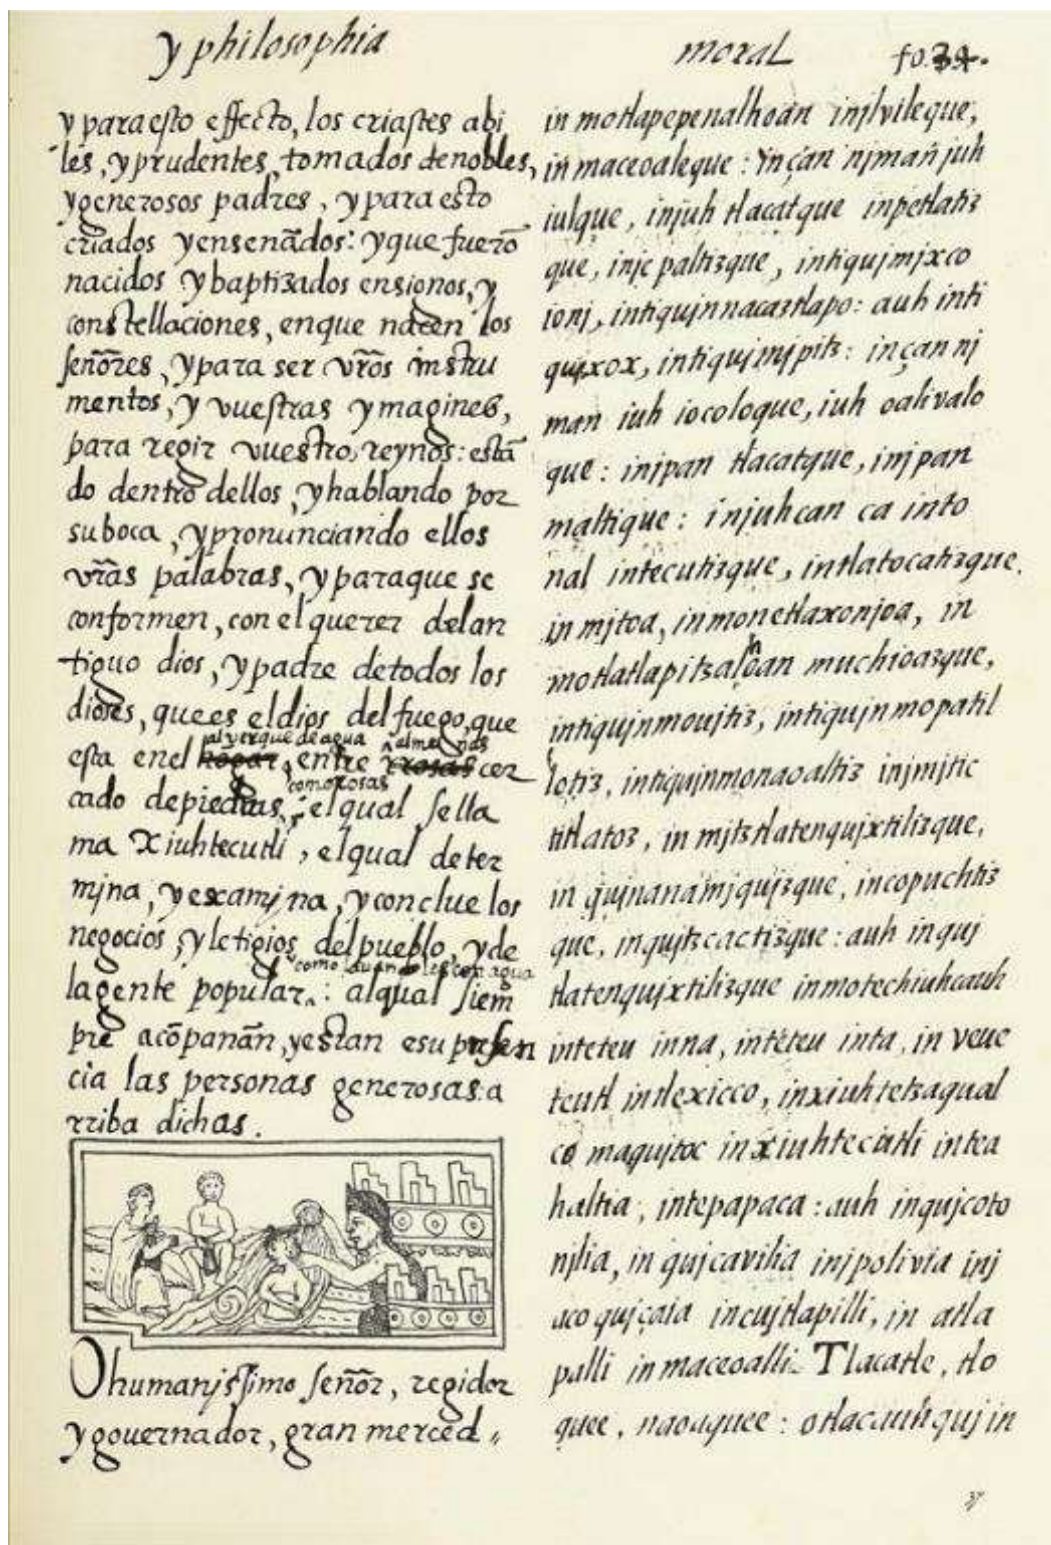 y philosophia moral fo. 34.
y para esto effecto, los criastes abi
les, y prudentes, tomados denobles,
y generosos padres, y para esto
criados y ensenãdos: y que fuerõ
nacidos y baptizados ensignos, y
constellaciones, enque nacen los
señores, y para ser vr̃os instru
mentos, y vuestras ymagines,
para regir vuestro, reynos: está
do dentro dellos, y hablando por
su boca, y pronunciando ellos
vr̃as palabras, y paraque se
conformen, con el querer delan
tiguo dios, y padre detodos los
dioses, que es el dios del fuego, que
al verque de agua almenas
esta en el hogar, entre rrosas cer
como rosas
cado depiedras, el qual se lla
ma Xiuhtecutli, el qual deter
mjna, y examjna, y conclue los
negocios, y letigios del pueblo, y de
como con agua
la gente popular: alqual siem
pre acõpanãn, y estan esu presen
cia las personas generosas a
rriba dichas.
O humanjssimo señor, regidor
y gouernador, gran merced
in motlapepenalhoan injlvileque,
in maceoaleque: in çan njman juh
iulque, injuh tlacatque inpetlatiz
que, injc paltizque, intiqujmjxco
ionj, intiqujnnacaztlapo: auh inti
qujxox, intiqujmjpitz: in çan nj
man iuh iocoloque, iuh oalivalo
que: injpan tlacatque, injpan
maltique: injuhcan ca into
nal intecutizque, intlatocatizque.
in mjtoa, inmonetlaxonjoa, in
h
motlatlapitzaloan muchioazque,
intiqujnmoujtiz, intiqujnmopatil
lotiz, intiqujnmonaoaltiz injmjtic
titlatoz, in mjtztlatenqujxtilizque,
in qujnanamjqujzque, incopuchtiz
que, inqujtzcactizque: auh inquj
tlatenqujxtilizque inmotechiuhcauh
inteteu inna, inteteu inta, in veue
teutl intlexicco, inxiuhtetzaqual
co maqujtoc in xiuhtecutli intea
haltia, intepapaca: auh inqujcoto
njlia, in qujcavilia injpolivia inj
acoqujçaia incujtlapilli, in atla
palli in maceoalli. Tlacatle, tlo
quee, naoaquee: otlacauhquj in
37